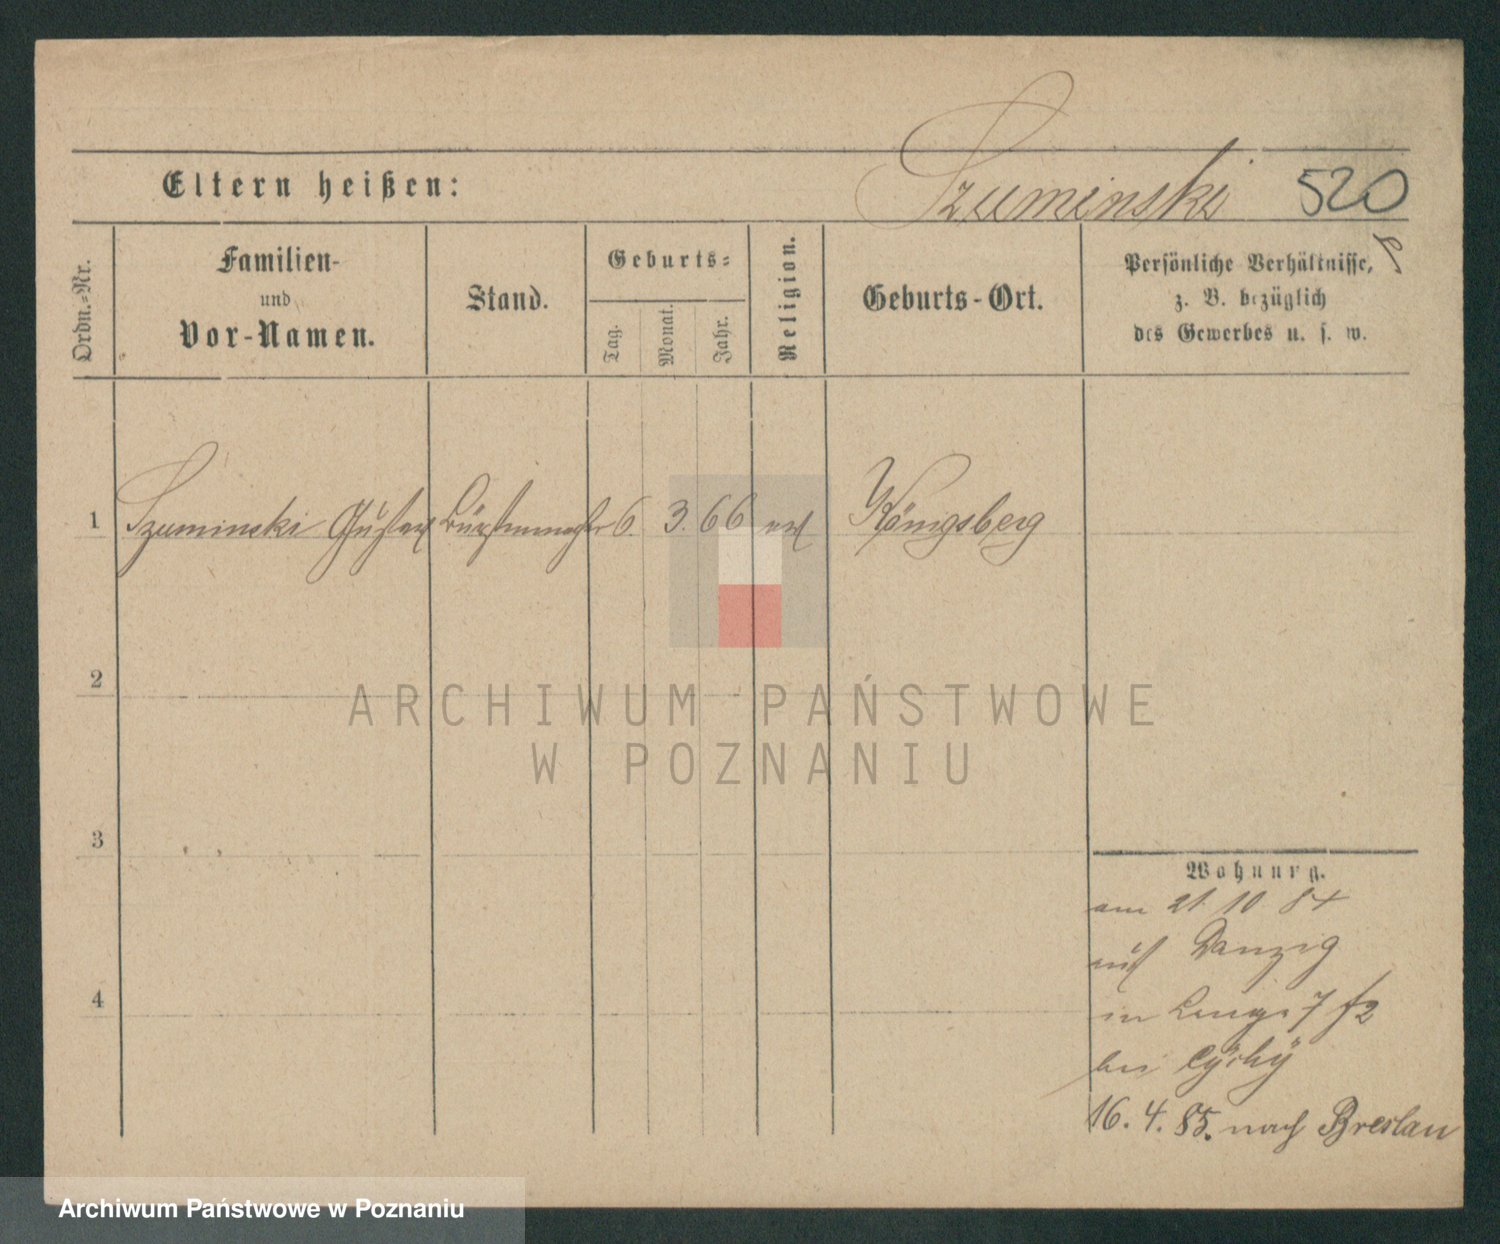 Szuminski 520
Eltern heißen:
Ordn.-Nr.
Familien-
und
Vor-Namen.
Stand.
Geburts-
Tag.
Monat.
Jahr.
Religion.
Geburts-Ort.
Persönliche Verhältnisse,
z. B. bezüglich
des Gewerbes u. s. w.
1 Szuminski Gustav Bürstenmacher 6. 3. 66 ev Königsberg
2
3
4
ARCHIWUM PAŃSTWOWE
W POZNANIU
Wohnung.
am 21 10 84
aus Danzig
in 7
bei
16. 4. 85. nach Breslau
Archiwum Państwowe w Poznaniu